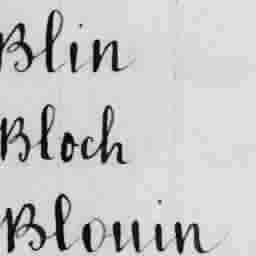 Blin
Bloch
Blouin